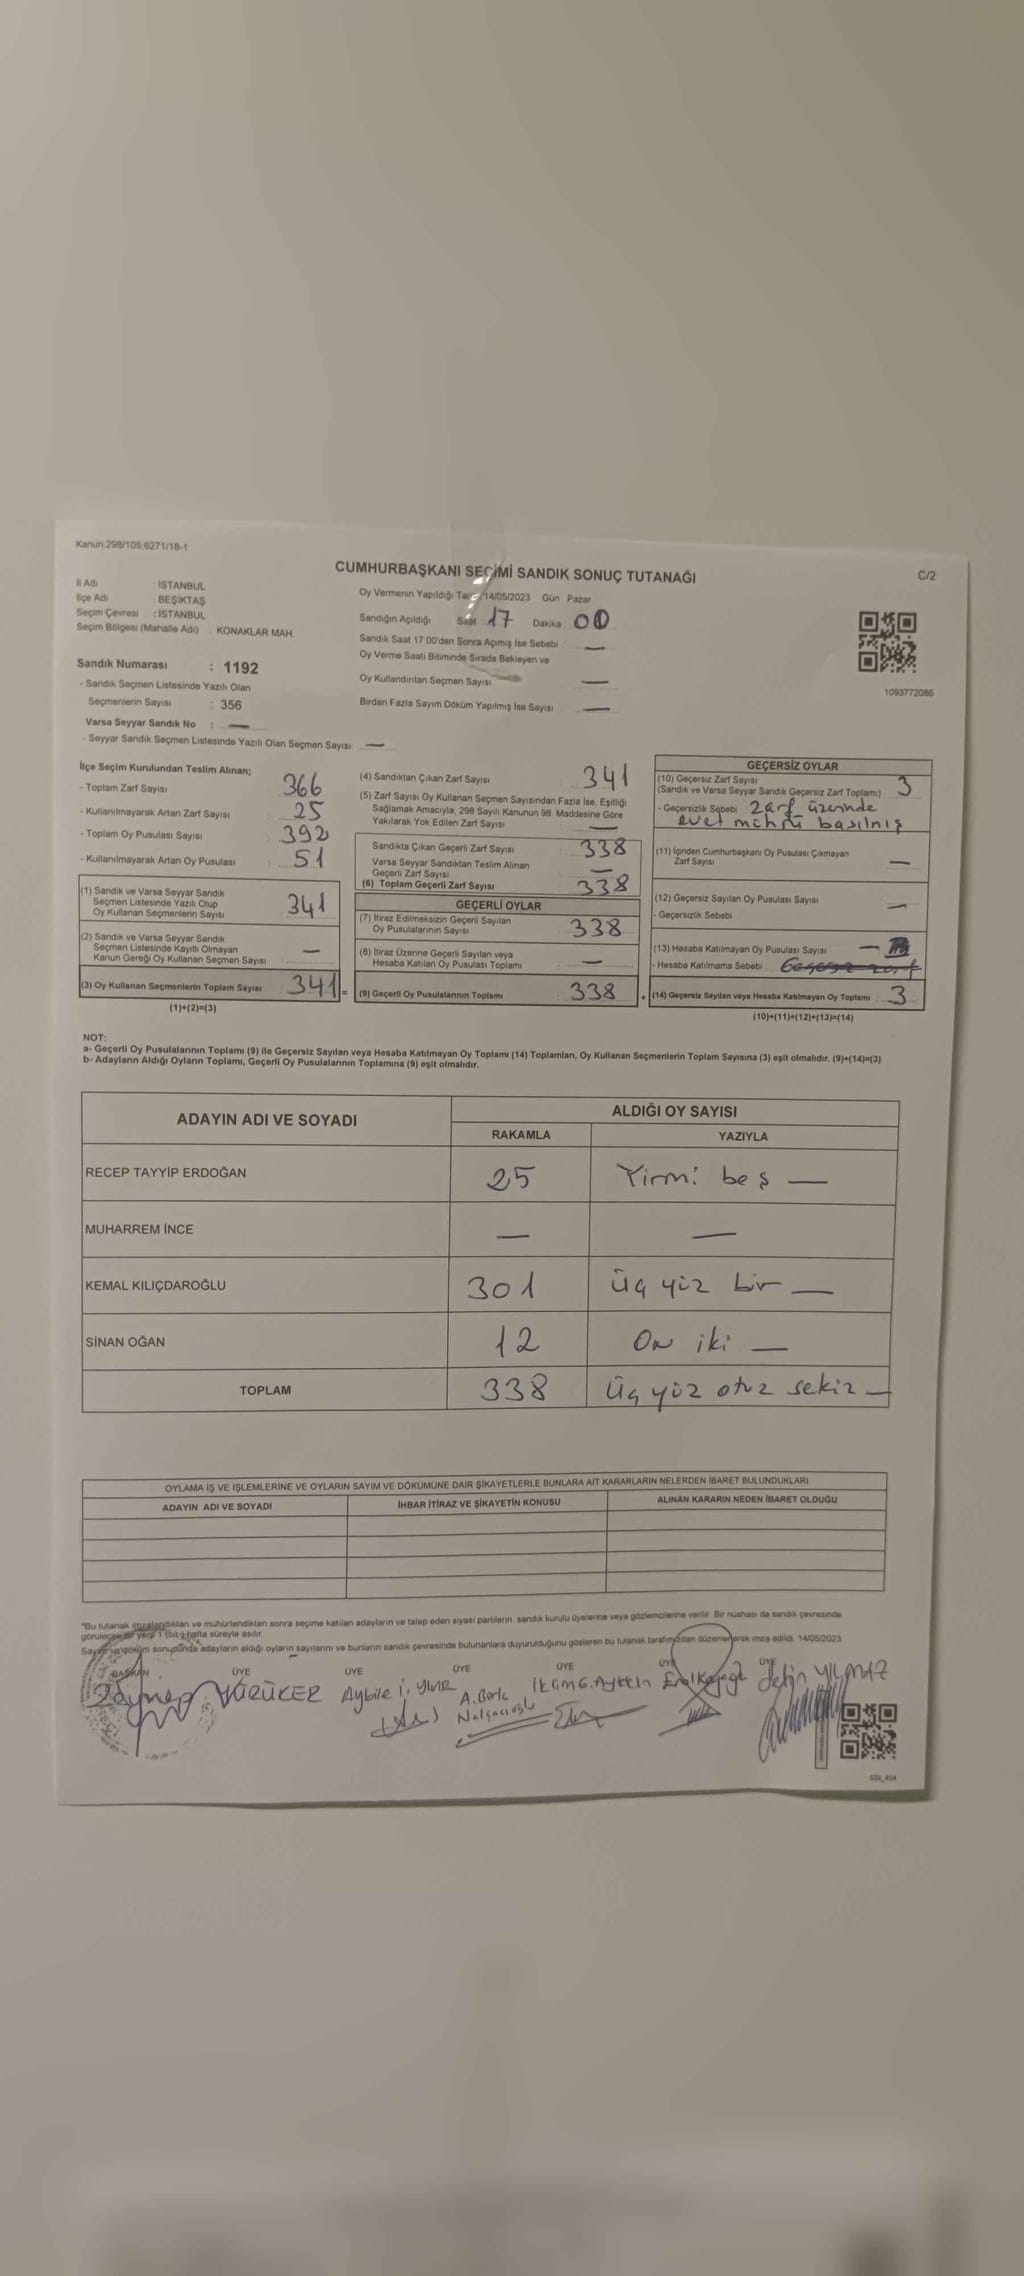 Kanun:298/105,6271/18-1
CUMHURBAŞKANI SEÇİMİ SANDIK SONUÇ TUTANAĞI
C/2
İl Adı : İSTANBUL
İlçe Adı : BEŞİKTAŞ
Seçim Çevresi : İSTANBUL
Seçim Bölgesi (Mahalle Adı) : KONAKLAR MAH.
Sandık Numarası : 1192
- Sandık Seçmen Listesinde Yazılı Olan
Seçmenlerin Sayısı : 356
Varsa Seyyar Sandık No : —
- Seyyar Sandık Seçmen Listesinde Yazılı Olan Seçmen Sayısı: —
Oy Vermenin Yapıldığı 14/05/2023 Gün Pazar
Sandığın Açıldığı Saat 17 Dakika 00
Sandık Saat 17:00'den Sonra Açılmış İse Sebebi —
Oy Verme Saati Bitiminde Sırada Bekleyen ve
Oy Kullandırılan Seçmen Sayısı —
Birden Fazla Sayım Döküm Yapılmış İse Sayısı —
1093772086
İlçe Seçim Kurulundan Teslim Alınan;
- Toplam Zarf Sayısı : 366
- Kullanılmayarak Artan Zarf Sayısı : 25
- Toplam Oy Pusulası Sayısı : 392
- Kullanılmayarak Artan Oy Pusulası : 51
(1) Sandık ve Varsa Seyyar Sandık
Seçmen Listesinde Yazılı Olup
Oy Kullanan Seçmenlerin Sayısı 341
(2) Sandık ve Varsa Seyyar Sandık
Seçmen Listesinde Kayıtlı Olmayan
Kanun Gereği Oy Kullanan Seçmen Sayısı —
(3) Oy Kullanan Seçmenlerin Toplam Sayısı 341 =
(1)+(2)=(3)
(4) Sandıktan Çıkan Zarf Sayısı : 341
(5) Zarf Sayısı Oy Kullanan Seçmen Sayısından Fazla İse, Eşitliği
Sağlamak Amacıyla, 298 Sayılı Kanunun 98. Maddesine Göre
Yakılarak Yok Edilen Zarf Sayısı —
Sandıkta Çıkan Geçerli Zarf Sayısı : 338
Varsa Seyyar Sandıktan Teslim Alınan
Geçerli Zarf Sayısı —
(6) Toplam Geçerli Zarf Sayısı 338
GEÇERLİ OYLAR
(7) İtiraz Edilmeksizin Geçerli Sayılan
Oy Pusulalarının Sayısı 338
(8) İtiraz Üzerine Geçerli Sayılan veya
Hesaba Katılan Oy Pusulası Toplamı —
(9) Geçerli Oy Pusulalarının Toplamı 338 +
GEÇERSİZ OYLAR
(10) Geçersiz Zarf Sayısı
(Sandık ve Varsa Seyyar Sandık Geçersiz Zarf Toplamı) 3
- Geçersizlik Sebebi : Zarf üzerinde
evet mührü basılmış
(11) İçinden Cumhurbaşkanı Oy Pusulası Çıkmayan
Zarf Sayısı —
(12) Geçersiz Sayılan Oy Pusulası Sayısı —
- Geçersizlik Sebebi
(13) Hesaba Katılmayan Oy Pusulası Sayısı —
- Hesaba Katılmama Sebebi :
(14) Geçersiz Sayılan veya Hesaba Katılmayan Oy Toplamı 3
(10)+(11)+(12)+(13)=(14)
NOT:
a- Geçerli Oy Pusulalarının Toplamı (9) ile Geçersiz Sayılan veya Hesaba Katılmayan Oy Toplamı (14) Toplamları, Oy Kullanan Seçmenlerin Toplam Sayısına (3) eşit olmalıdır. (9)+(14)=(3)
b- Adayların Aldığı Oyların Toplamı, Geçerli Oy Pusulalarının Toplamına (9) eşit olmalıdır.
ADAYIN ADI VE SOYADI
ALDIĞI OY SAYISI
RAKAMLA YAZIYLA
RECEP TAYYİP ERDOĞAN 25 Yirmi beş —
MUHARREM İNCE — —
KEMAL KILIÇDAROĞLU 301 Üç yüz bir —
SİNAN OĞAN 12 On iki —
TOPLAM 338 Üç yüz otuz sekiz —
OYLAMA İŞ VE İŞLEMLERİNE VE OYLARIN SAYIM VE DÖKÜMÜNE DAİR ŞİKAYETLERLE BUNLARA AİT KARARLARIN NELERDEN İBARET BULUNDUKLARI
ADAYIN ADI VE SOYADI İHBAR İTİRAZ VE ŞİKAYETİN KONUSU ALINAN KARARIN NEDEN İBARET OLDUĞU
"Bu tutanak imzalandıktan ve mühürlendikten sonra seçime katılan adayların ve talep eden siyasi partilerin sandık kurulu üyelerine veya gözlemcilerine verilir. Bir nüshası da sandık çevresinde
görülecek bir yere 1 (bir) hafta süreyle asılır.
Sayım ve döküm sonucunda adayların aldığı oyların sayılarını ve bunların sandık çevresinde bulunanlara duyurulduğunu gösteren bu tutanak tarafımızdan düzenlenerek imza edildi. 14/05/2023
BAŞKAN ÜYE ÜYE ÜYE ÜYE ÜYE ÜYE
Zeynep YÜRÜKER Aybike A. Berk Nalçacıoğlu YILMAZ